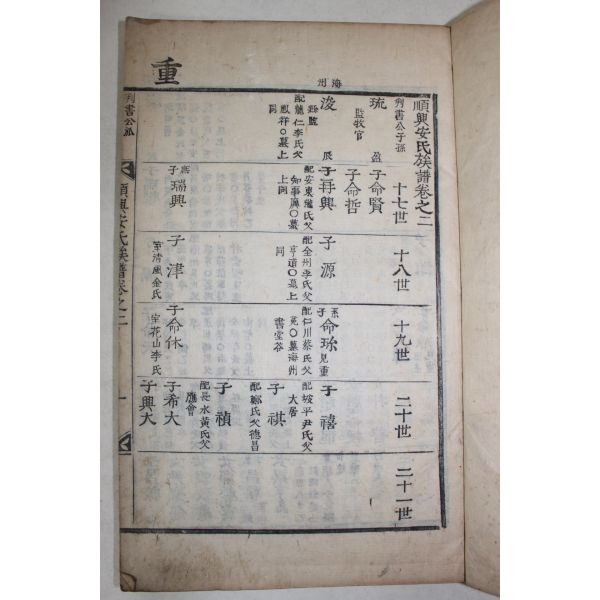 重
海州
順興安氏族譜卷之二
判書公子孫
琉
監牧官
盈
浚
縣監
配龍仁李氏父
鳳祥○墓上
同
辰
十七世
子命賢
子命哲
子再興
配安東權氏父
知事○墓
上同
子瑞興
十八世
子源
配全州李氏父
亨道○墓上
同
子津
室清風金氏
十九世
系子命珎
見重
配仁川蔡氏父
○墓海州
書堂谷
子命休
室花山李氏
二十世
子禧
配坡平尹氏父
大居
子祺
配鄭氏父德昌
子禎
配長水黃氏父
應會
子希大
子興大
二十一世
判書公派
順興安氏族譜卷之二
一